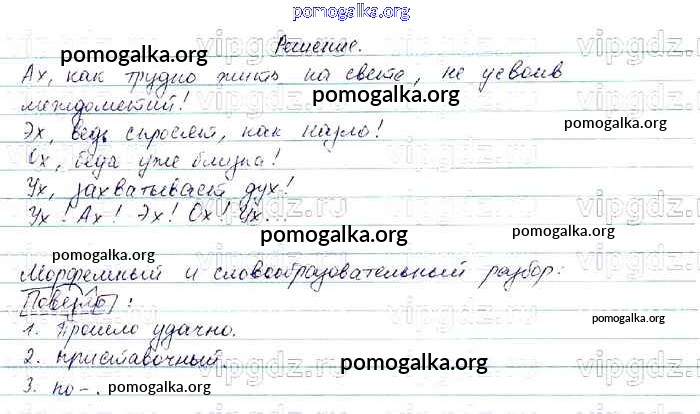 pomogalka.org
Решение.
Ах, как трудно жить на свете, не усвоив
междометий!
Эх, ведь спросят, как назло!
Ох, беда уже близка!
Ух, захватывает дух!
Ух! Ах! Эх! Ох! Их...
Морфемный и словообразовательный разбор:
Повезло :
1. Прошло удачно.
2. приставочный.
3. по-.
pomogalka.org
pomogalka.org
pomogalka.org
pomogalka.org
pomogalka.org
pomogalka.org
pomogalka.org
pomogalka.org
pomogalka.org
vipgdz.ru
vipgdz.ru
vipgdz.ru